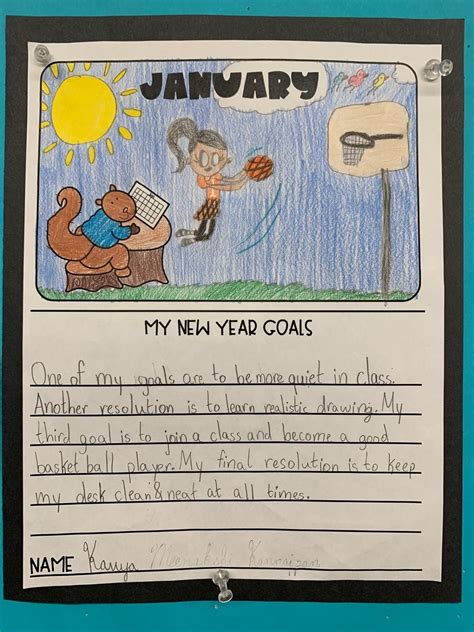 JANUARY
MY NEW YEAR GOALS
One of my goals are to be more quiet in class.
Another resolution is to learn realistic drawing. My
third goal is to join a class and become a good
basket ball player. My final resolution is to keep
my desk clean & neat at all times.
NAME Kavya